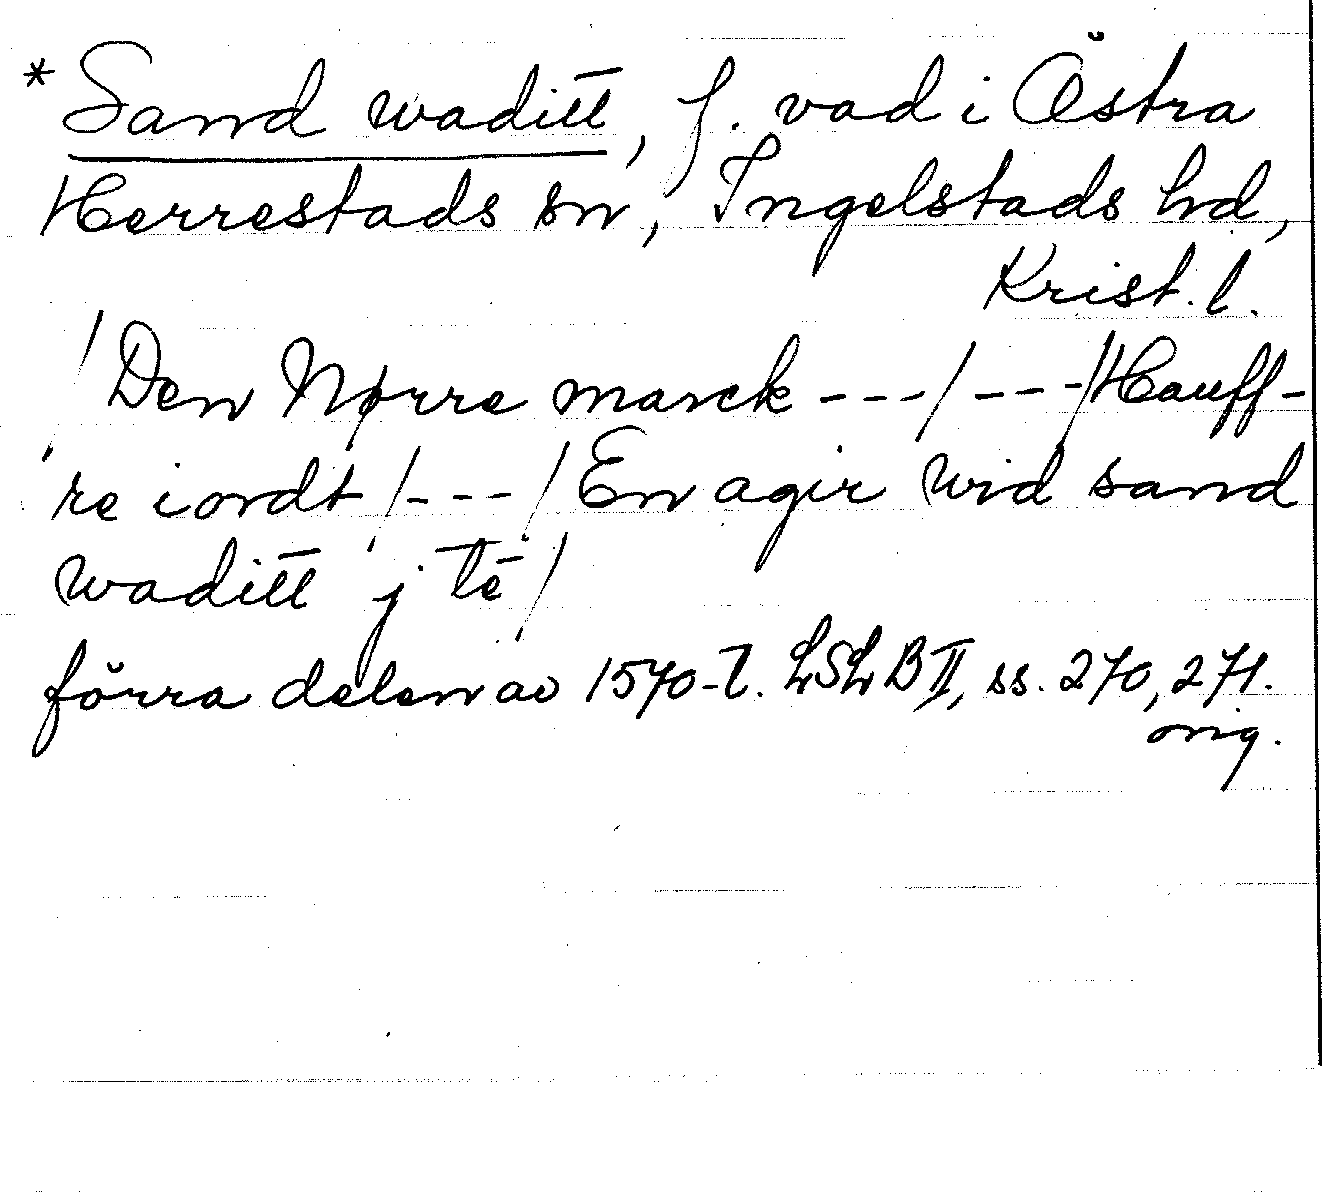 *Sand waditt̄, f. vad i Östra
Herrestads sn, Ingelstads hd,
Krist. l.
/Den Nørre marck ---/---/Hauff-
re iordt/---/En agir wid sand
waditt̄ j tē/
förra delen av 1570-t. LSLB II, ss. 270, 271.
orig.